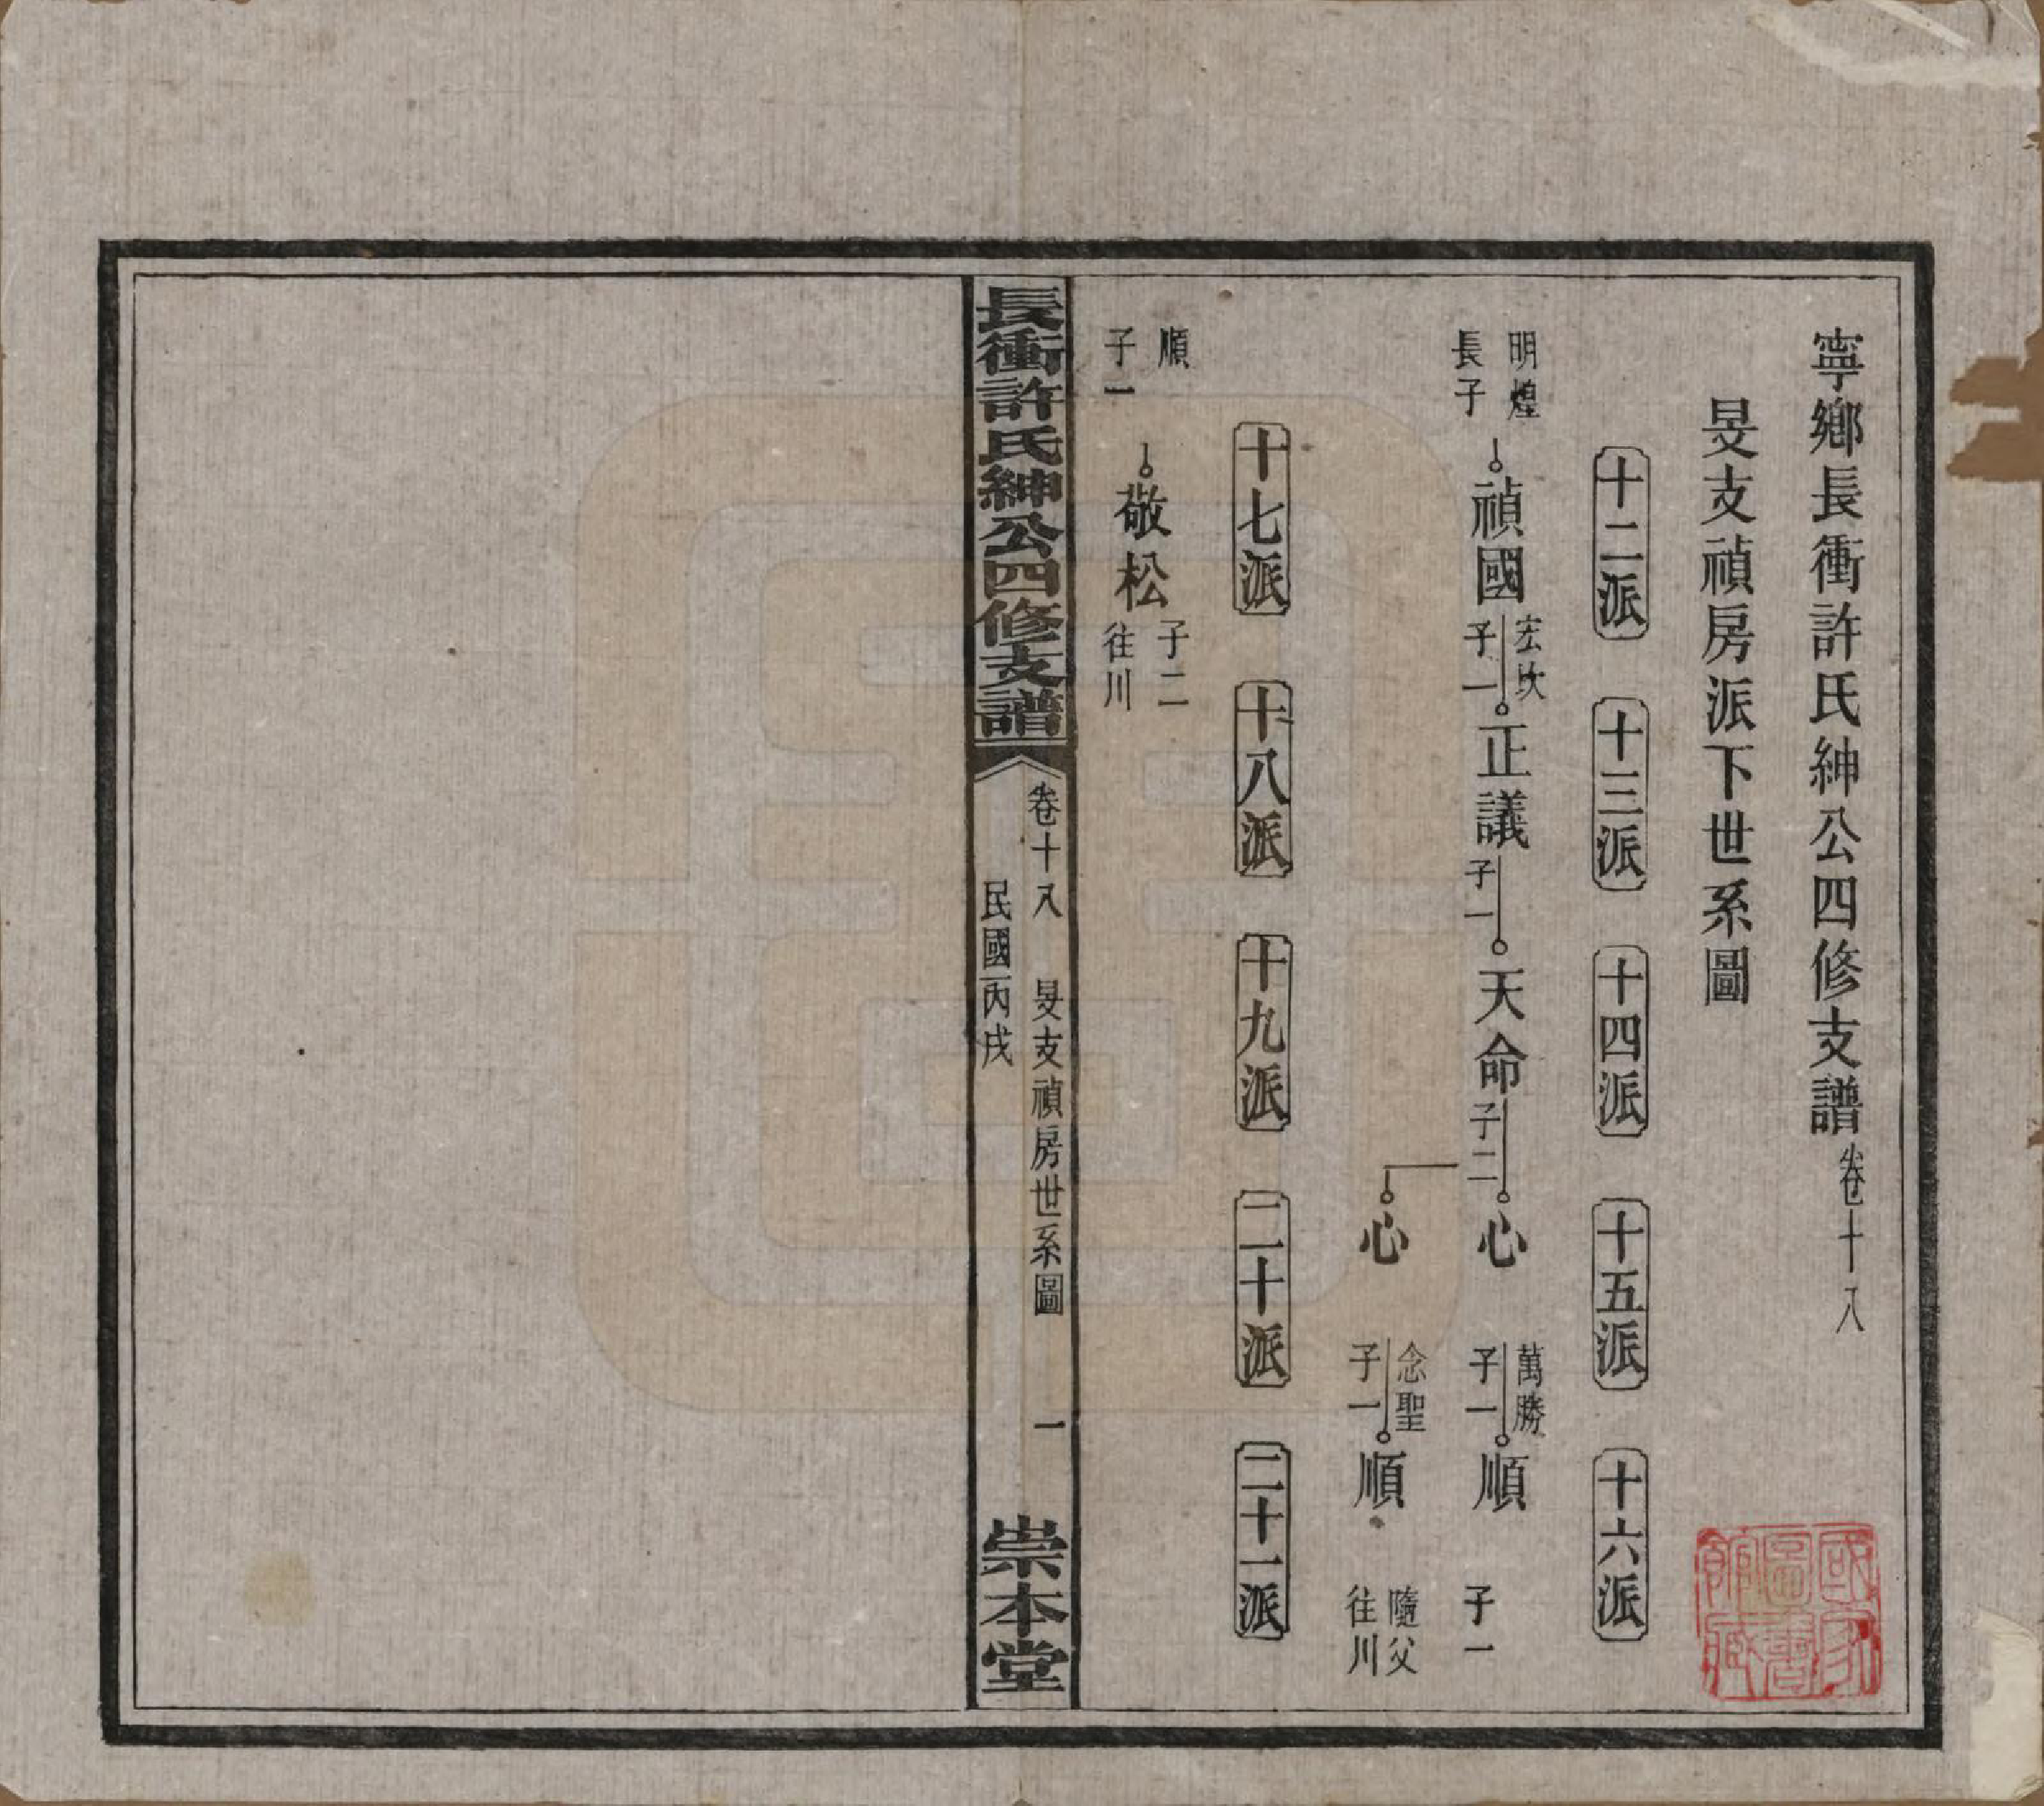 寧鄉長衝許氏紳公四修支譜卷十八
旻支禎房派下世系圖
十二派 十三派 十四派 十五派 十六派
明煌
長子
禎國
宏坎
子一
正議
子一
天命
子二
心
萬勝
子一
順
子一
心
念聖
子一
順
隨父
往川
十七派 十八派 十九派 二十派 二十一派
順
子一
敬松
子二
往川
長衝許氏紳公四修支譜
卷十八 旻支禎房世系圖 一
民國丙戌
崇本堂
國家圖書館藏